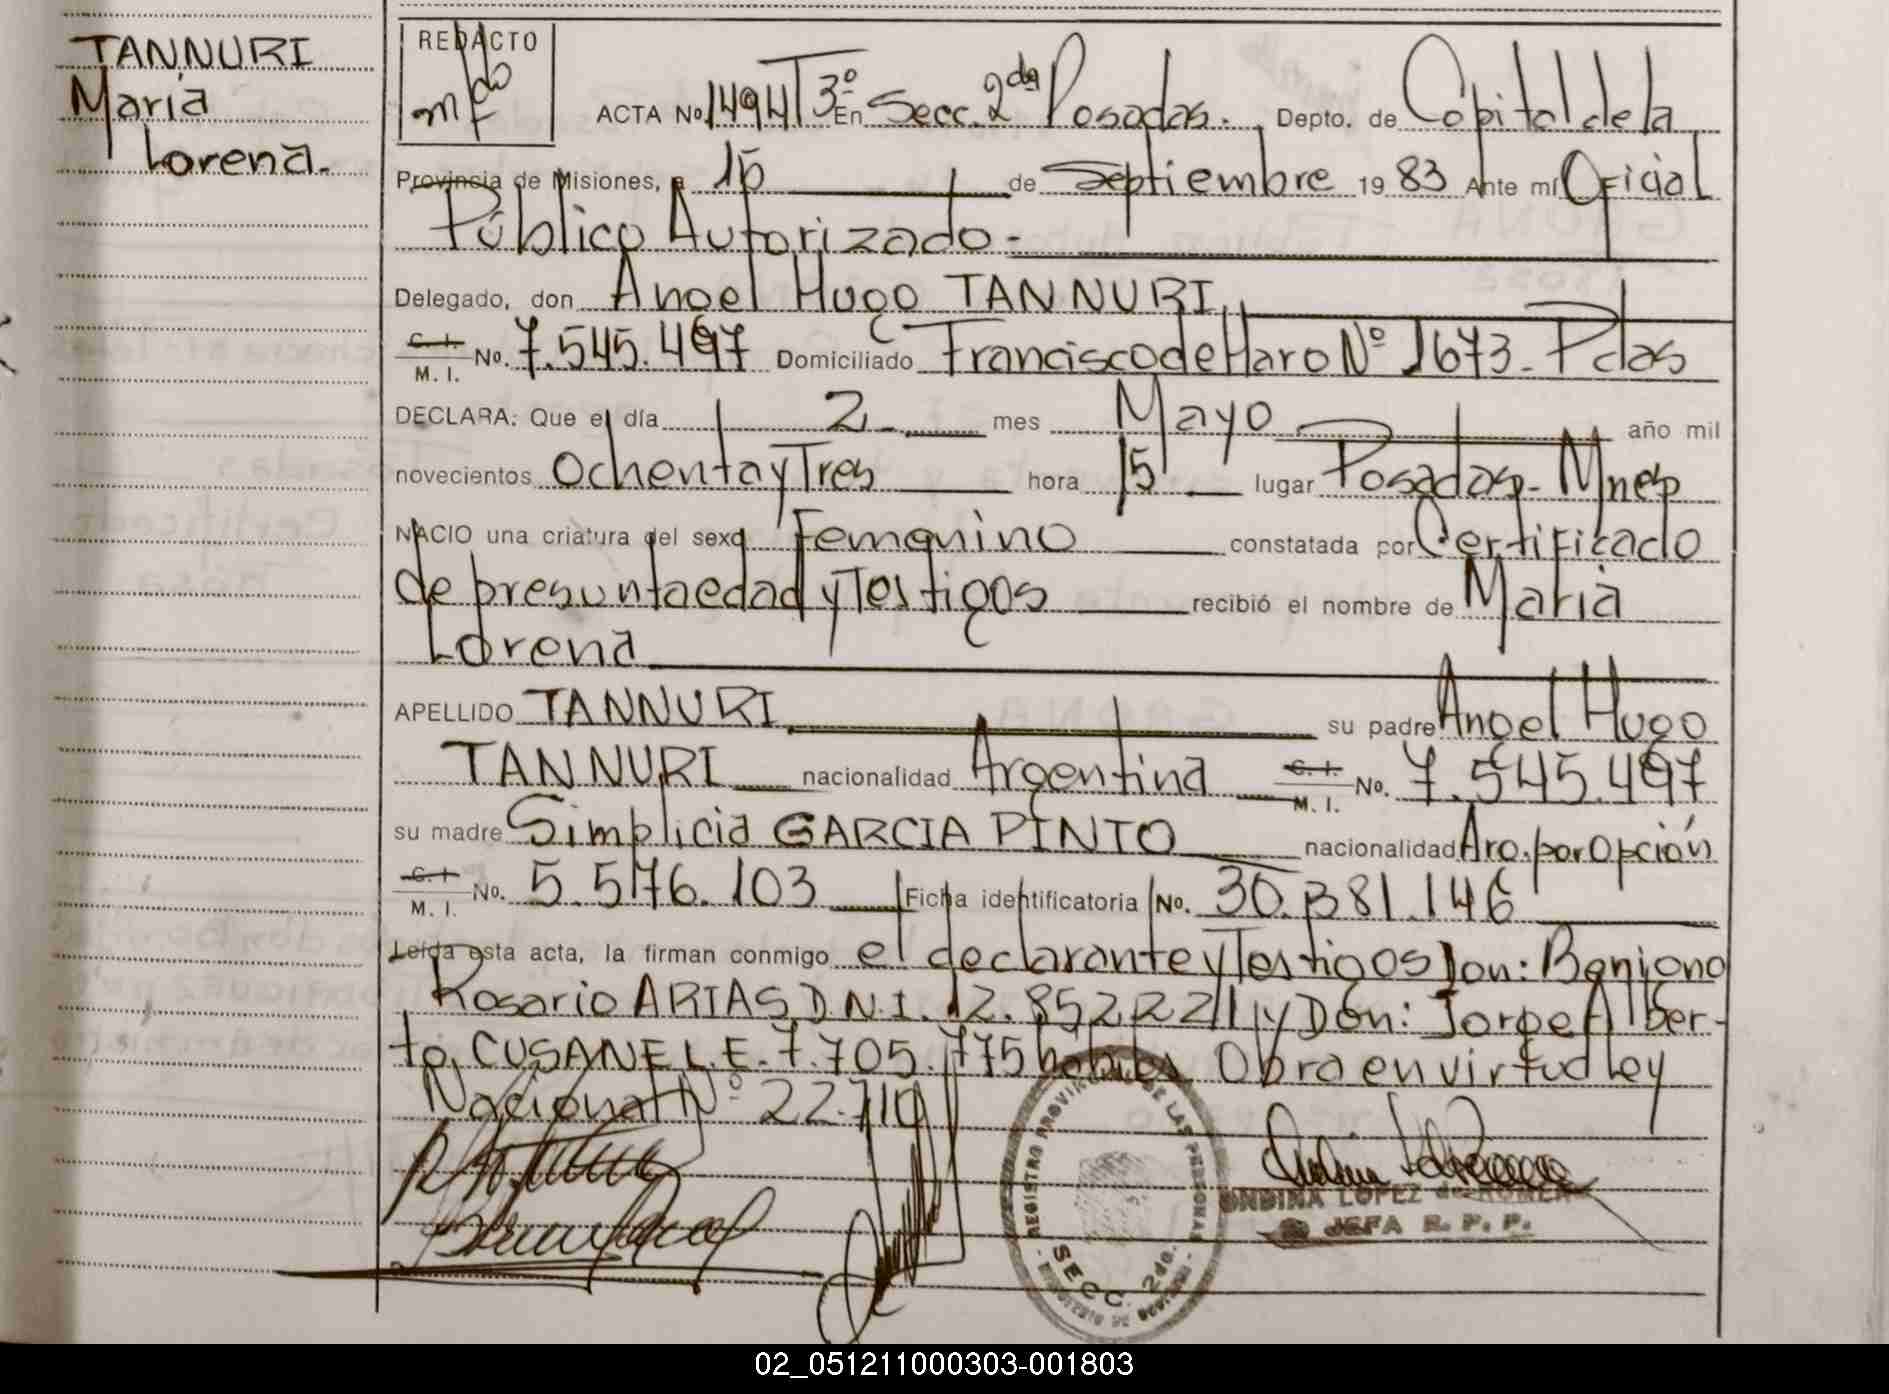 TANNURI
Maria
Lorena.
REDACTO
ACTA No 1494 T 3º En Secc. 2da Posadas. Depto. de Capital de la
Provincia de Misiones, a 15 de Septiembre 19 83 Ante mí Oficial
Público Autorizado.-
Delegado, don Angel Hugo TANNURI
C. I.
M. I. No. 7.545.497 Domiciliado Francisco de Haro Nº 1673. Pdas
DECLARA: Que el día 2 mes Mayo año mil
novecientos Ochenta y Tres hora 15 lugar Posadas- Mnes
NACIO una criatura del sexo Femenino constatada por Certificado
de presunta edad y Testigos recibió el nombre de Maria
Lorena
APELLIDO TANNURI su padre Angel Hugo
TANNURI nacionalidad Argentina C. I.
M. I. No. 7.545.497
su madre Simplicia GARCIA PINTO nacionalidad Arg. por Opción
C. I.
M. I. No. 5.576.103 Ficha identificatoria No. 30.381.146
Leída esta acta, la firman conmigo el declarante y Testigos Don: Benigno
Rosario ARIAS D.N.I. 12.852.221 y Don: Jorge Alber-
to CUSANE L.E. 7.705.775 habiles Obra en virtud ley
Nacional Nº 22.710
REGISTRO PROVINCIAL DE LAS PERSONAS
SECC. 2da.
MINISTERIO DE GOBIERNO
ONDINA LOPEZ de ROMERO
JEFA R. P. P.
02_051211000303-001803